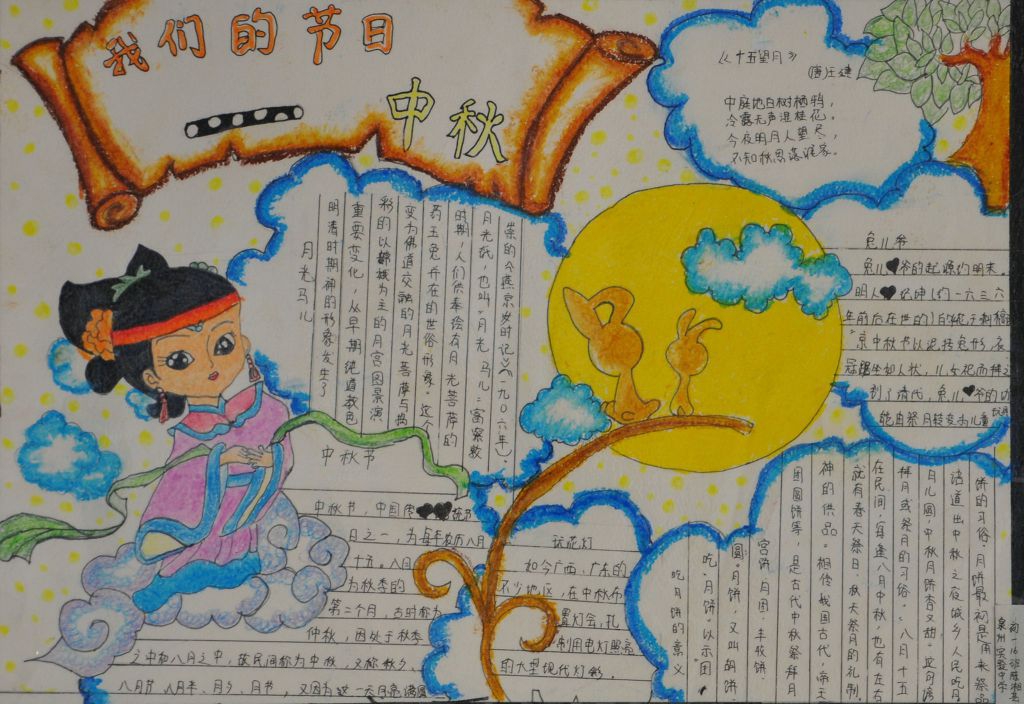 我们的节日
中秋
《十五望月》
(唐)王建
中庭地白树栖鸦，
冷露无声湿桂花，
今夜明月人望尽，
不知秋思落谁家。
月光马儿
明清时期神的形象发生了
重要变化，从早期纯道教色
彩的以嫦娥为主的月宫图景演
变为佛道交融的月光菩萨与捣
药玉兔并在的世俗形象。这个
时期，人们供奉绘有月光菩萨的
月光纸，也叫"月光马儿"富察敦
崇的《燕京岁时记》(一九〇六年)。
兔儿爷
兔儿爷的起源约明末。
明人纪坤(约一六三六
年前后在世的)
京中秋节以泥抟兔形，衣
冠踞坐如人状，儿女祀而拜之
到了清代，兔儿爷的功
能由祭月转变为儿童
中秋节
中秋节，中国传统节
日之一，为每年农历八月
十五。八月
为秋季的
第二个月，古时称为
仲秋，因处于秋季
之中和八月之中，故民间称为中秋，又称秋夕、
八月节、八月半、月夕、月节，又因为这一天月亮满圆
玩花灯
如今广西、广东的
不少地区，在中秋布
置灯会，扎
制用电灯照亮
的大型现代灯彩，
吃月饼的意义
吃"月饼"以示"团
圆"月饼，又叫胡饼、
宫饼、月团、丰收饼、
团圆饼等，是古代中秋祭拜月
神的供品。相传我国古代，帝王
就有春天祭日，秋天祭月的礼制。
在民间，每逢八月中秋，也有左右
拜月或祭月的习俗。"八月十五
月儿圆，中秋月饼香又甜"。这句谚
语道出中秋之夜城乡人民吃月
饼的习俗。月饼最初是用来祭品
泉州实验中学